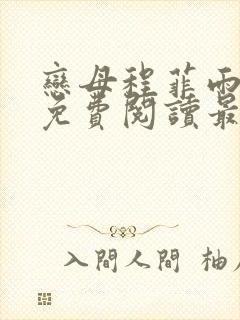 戀母程菲雨
免費閱讀最
入間人間 柚